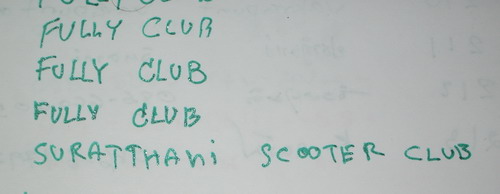 FULLY CLUB
FULLY CLUB
FULLY CLUB
SURATTHANi SCOOTER CLUB